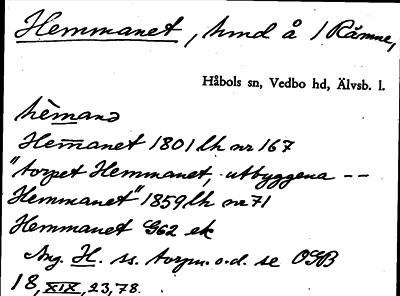 Hemmanet, hmd å 1 Råmne,
Håbols sn, Vedbo hd, Älvsb. l.
hèmanə
Hem̅anet 1801 lh nr 167
"torpet Hemmanet, utbyggena --
Hemmanet" 1859 lh nr 71
Hemmanet G62 ek
Ang. H. ss. torpn. o.d. se OGB
18, XIX, 23, 78.